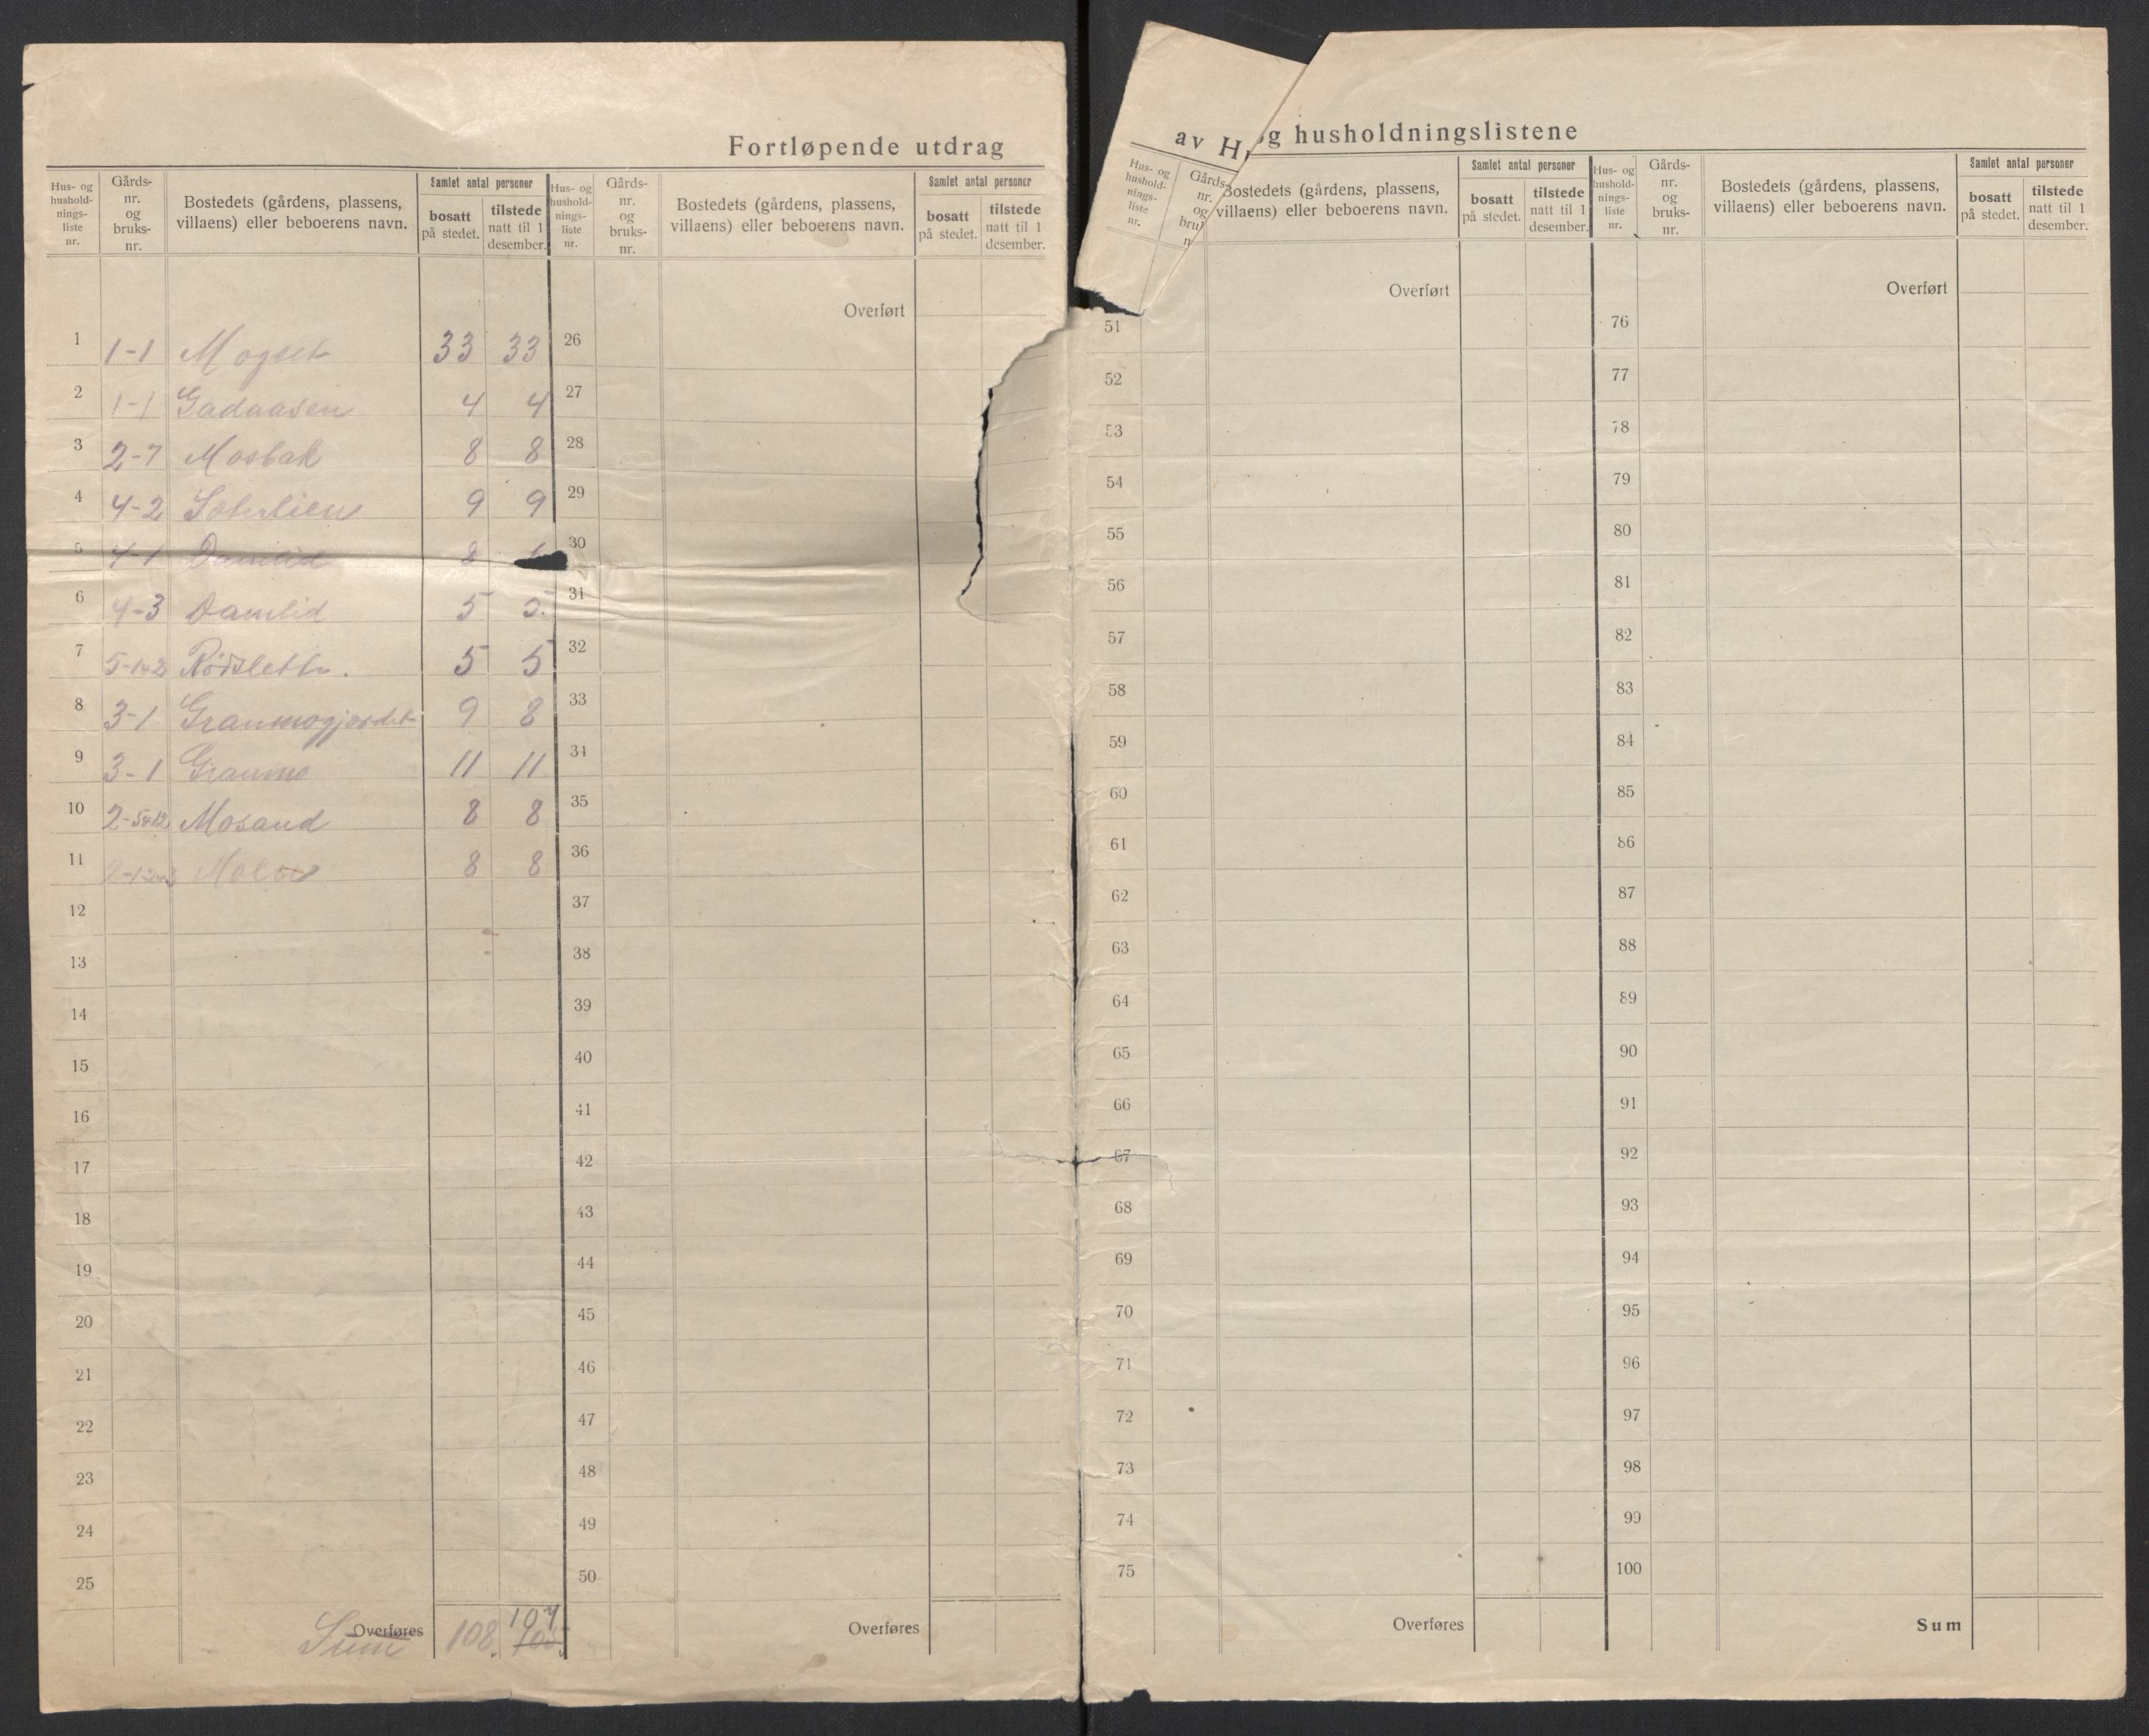 Fortløpende utdrag
av H
og husholdningslistene
Hus- og husholdnings-liste nr.
Gårds-nr. og bruks-nr.
Bostedets (gårdens, plassens, villaens) eller beboerens navn.
Samlet antal personer
bosatt på stedet.
tilstede natt til 1 desember.
Hus- og husholdnings-liste nr.
Gårds-nr. og bruks-nr.
Bostedets (gårdens, plassens, villaens) eller beboerens navn.
Samlet antal personer
bosatt på stedet.
tilstede natt til 1 desember.
Hus- og hushold-nings-liste nr.
Gårds-nr. og bru
n
Bostedets (gårdens, plassens, villaens) eller beboerens navn.
Samlet antal personer
bosatt på stedet.
tilstede natt til 1 desember.
Hus- og hushold-nings-liste nr.
Gårds-nr. og bruks-nr.
Bostedets (gårdens, plassens, villaens) eller beboerens navn.
Samlet antal personer
bosatt på stedet.
tilstede natt til 1 desember.
Overført
Overført
Overført
1 1-1 Mogset 33 33
2 1-1 Gadaasen 4 4
3 2-7 Mosbak 8 8
4 4-2 9 9
5 4-1 Damlid 8
6 4-3 Damlid 5 5.
7 5-1&2 Rödslette. 5 5
8 3-1 Granmogjordet 9 8
9 3-1 Granmo 11 11
10 2-5&12 Mosand 8 8
11 8 8
12
13
14
15
16
17
18
19
20
21
22
23
24
25
Overføres
Sum 108. 107
26
27
28
29
30
31
32
33
34
35
36
37
38
39
40
41
42
43
44
45
46
47
48
49
50
Overføres
51
52
53
54
55
56
57
58
59
60
61
62
63
64
65
66
67
68
69
70
71
72
73
74
75
Overføres
76
77
78
79
80
81
82
83
84
85
86
87
88
89
90
91
92
93
94
95
96
97
98
99
100
Sum